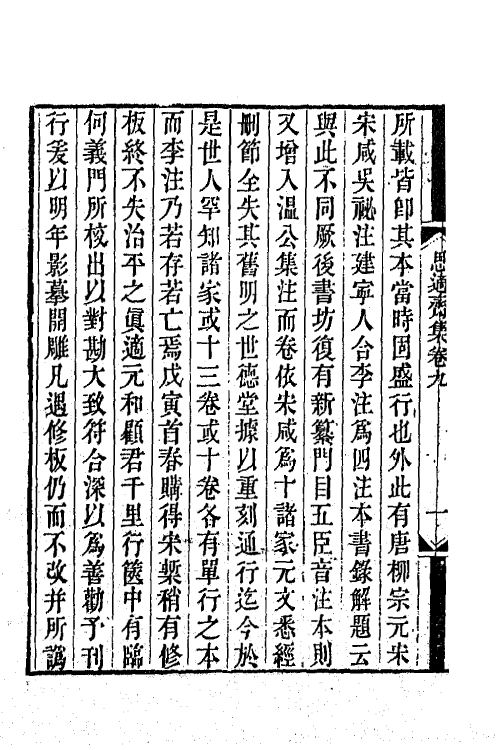 思適齋集卷九
一
所載皆卽其本當時固盛行也外此有唐柳宗元宋
宋咸吳祕注建寧人合李注爲四注本書錄解題云
與此不同厥後書坊復有新纂門目五臣音注本則
又增入溫公集注而卷依宋咸爲十諸家元文悉經
刪節全失其舊明之世德堂據以重刻通行迄今於
是世人罕知諸家或十三卷或十卷各有單行之本
而李注乃若存若亡焉戊寅首春購得宋槧稍有修
板終不失治平之眞適元和顧君千里行篋中有臨
何義門所校出以對勘大致符合深以爲善勸予刊
行爰以明年影摹開雕凡遇修板仍而不改幷所譌